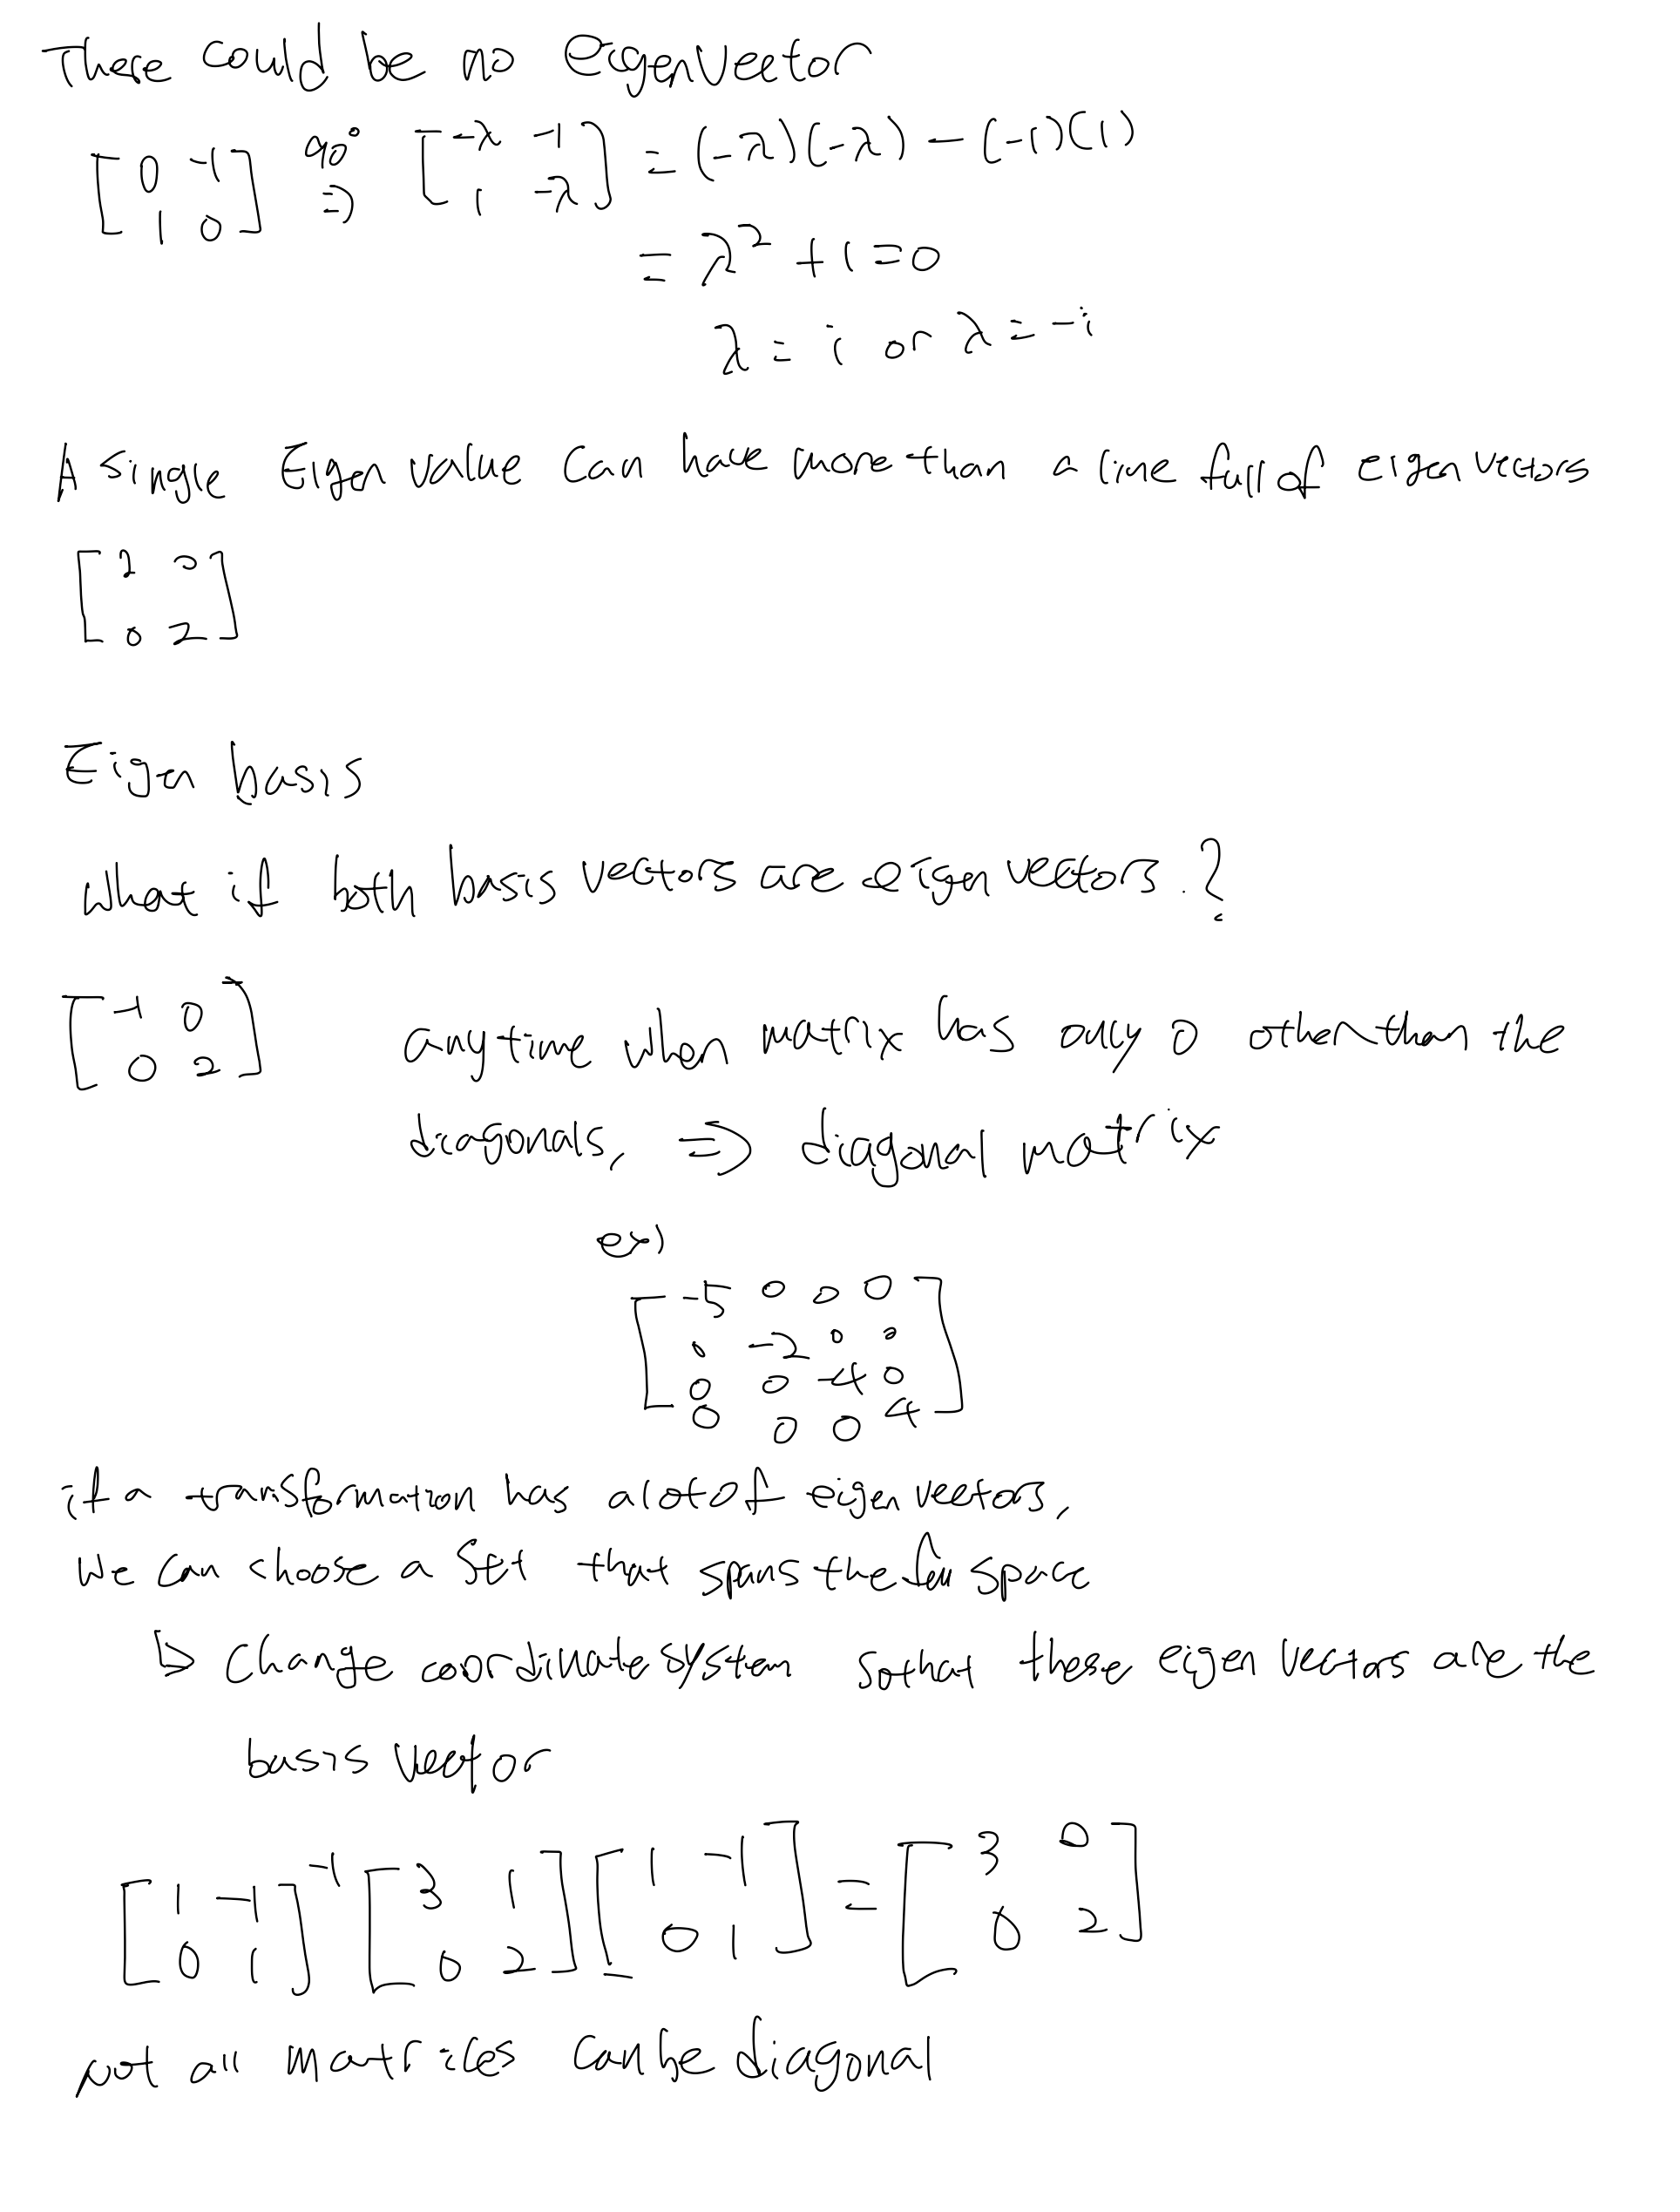 There could be no eigenvector
[0 -1; 1 0] 90° ⇒ [-λ -1; 1 -λ] = (-λ)(-λ) - (-1)(1)
= λ² + 1 = 0
λ = i or λ = -i
A single Eigen value can have more than a line full of eigen vectors
[2 0; 0 2]
Eigen basis
what if both basis vectors are eigen vectors.?
[-1 0; 0 2] anytime when matrix has only 0 other than the
diagonals, ⇒ diagonal matrix
ex)
[-5 0 0 0
0 -2 0 0
0 0 -4 0
0 0 0 4]
if a transformation has a lot of eigen vectors,
we can choose a set that spans the full space
↳ Change coordinate system so that these eigen vectors are the
basis vector
[1 -1; 0 1]⁻¹ [3 1; 0 2] [1 -1; 0 1] = [3 0; 0 2]
Not all matrices can be diagonal